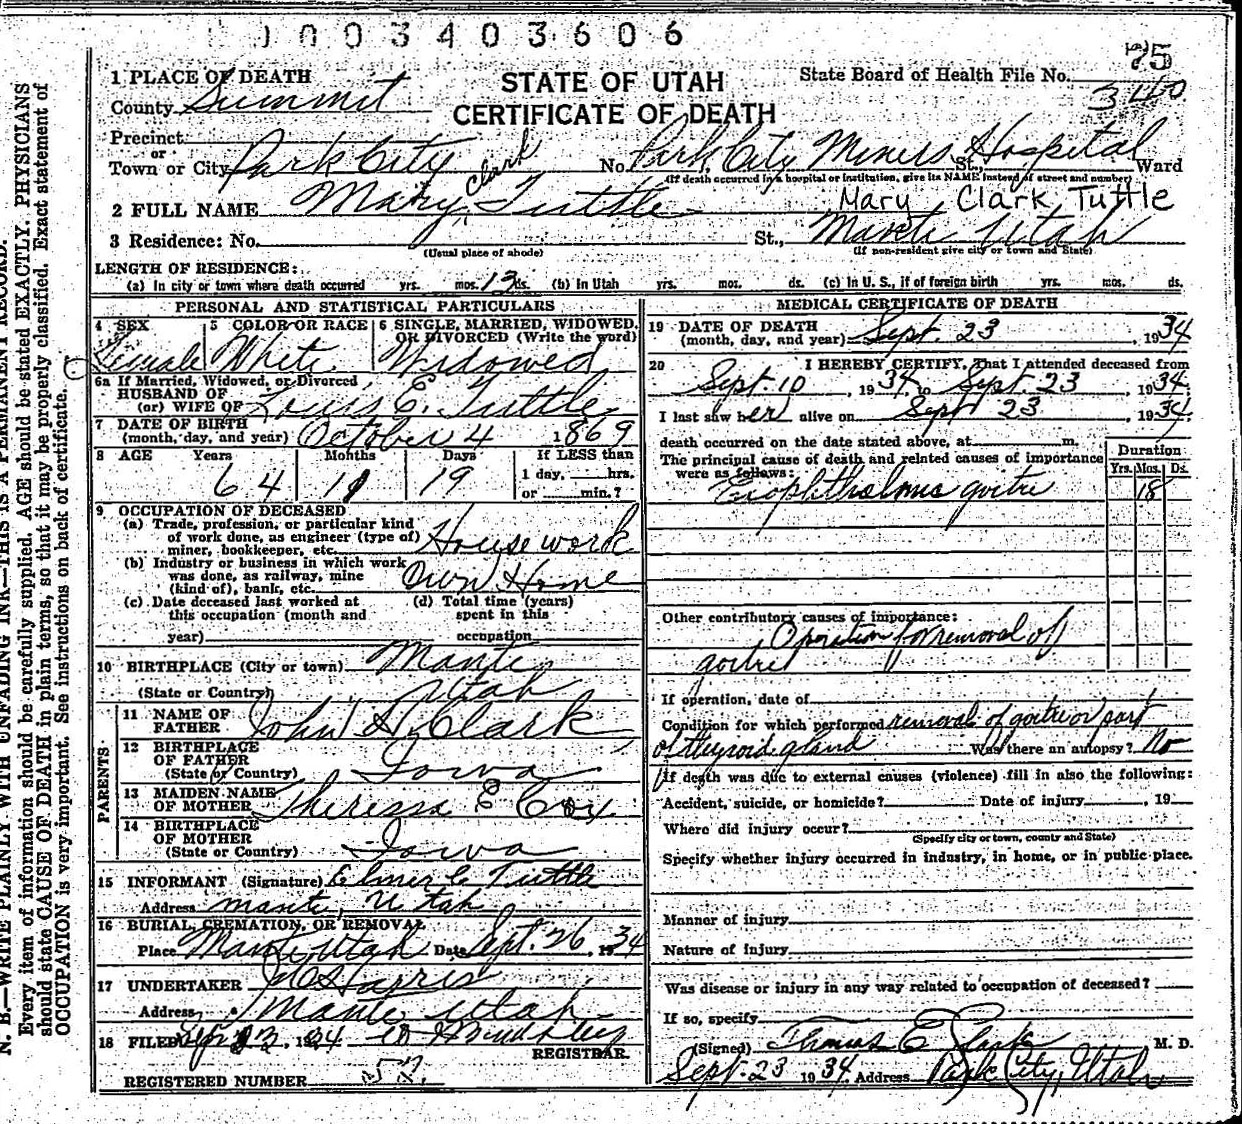 0003403606
75
1 PLACE OF DEATH
STATE OF UTAH
State Board of Health File No. 340
County Summit
CERTIFICATE OF DEATH
Precinct
or
Town or City Park City No. Park City Miners Hospital St., Ward
(If death occurred in a hospital or institution, give its NAME instead of street and number)
2 FULL NAME Mary Clark Tuttle Mary Clark Tuttle
3 Residence: No. St., Manti Utah
(Usual place of abode) (If non-resident give city or town and State)
LENGTH OF RESIDENCE:
(a) In city or town where death occurred yrs. mos. 13 ds. (b) In Utah yrs. mos. ds. (c) In U. S., if of foreign birth yrs. mos. ds.
PERSONAL AND STATISTICAL PARTICULARS
4 SEX Female
5 COLOR OR RACE White
6 SINGLE, MARRIED, WIDOWED, OR DIVORCED (Write the word) Widowed
6a If Married, Widowed, or Divorced
HUSBAND OF
(or) WIFE OF Louis E. Tuttle
7 DATE OF BIRTH
(month, day, and year) October 4 1869
8 AGE Years Months Days If LESS than
64 11 19 1 day, hrs.
or min.?
9 OCCUPATION OF DECEASED
(a) Trade, profession, or particular kind
of work done, as engineer (type of)
miner, bookkeeper, etc. Housework
(b) Industry or business in which work
was done, as railway, mine
(kind of), bank, etc. Own Home
(c) Date deceased last worked at
this occupation (month and
year)
(d) Total time (years)
spent in this
occupation
10 BIRTHPLACE (City or town) Manti
(State or Country) Utah
PARENTS
11 NAME OF
FATHER John Clark
12 BIRTHPLACE
OF FATHER
(State or Country) Iowa
13 MAIDEN NAME
OF MOTHER Theressa E Cox
14 BIRTHPLACE
OF MOTHER
(State or Country) Iowa
15 INFORMANT (Signature) Elmer C Tuttle
Address Manti, Utah
16 BURIAL, CREMATION, OR REMOVAL
Place Manti Utah Date Sept. 26, 1934
17 UNDERTAKER Harris
Address Manti Utah
18 FILED 1934
REGISTRAR.
REGISTERED NUMBER 57
MEDICAL CERTIFICATE OF DEATH
19 DATE OF DEATH
(month, day, and year) Sept. 23, 1934
20 I HEREBY CERTIFY, That I attended deceased from
Sept. 10, 1934, to Sept. 23, 1934.
I last saw her alive on Sept 23 1934.
death occurred on the date stated above, at m.
The principal cause of death and related causes of importance
were as follows:
Duration
Yrs. Mos. Ds.
Exophthalmic goitre 18
Other contributory causes of importance:
Operation for removal of
goitre
If operation, date of
Condition for which performed removal of goitre or part
of thyroid gland Was there an autopsy? No
If death was due to external causes (violence) fill in also the following:
Accident, suicide, or homicide? Date of injury , 19
Where did injury occur?
(Specify city or town, county and State)
Specify whether injury occurred in industry, in home, or in public place.
Manner of injury
Nature of injury
Was disease or injury in any way related to occupation of deceased?
If so, specify
(Signed) Thomas E Clark M. D.
Sept. 23 1934. Address Park City, Utah
N. B.—WRITE PLAINLY WITH UNFADING INK—THIS IS A PERMANENT RECORD.
Every item of information should be carefully supplied. AGE should be stated EXACTLY. PHYSICIANS
should state CAUSE OF DEATH in plain terms, so that it may be properly classified. Exact statement of
OCCUPATION is very important. See instructions on back of certificate.